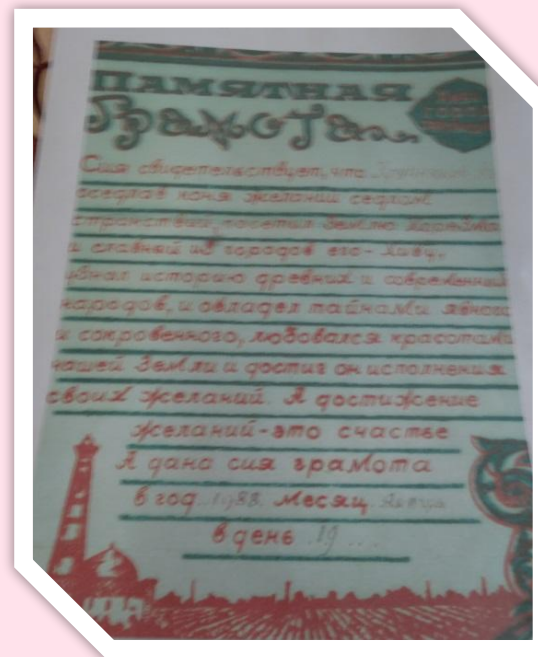 ПАМЯТНАЯ
Грамота
Сия свидетельствует, что
оседлав коня желаний седлом
странствий, посетил Землю Хорезма
и славный из городов его - Хиву,
узнал историю древних и современных
народов, и овладел тайнами явного
и сокровенного, любовался красотами
нашей Земли и достиг он исполнения
своих желаний. А достижение
желаний - это счастье
А дана сия грамота
в год 1988 месяц
в день 19